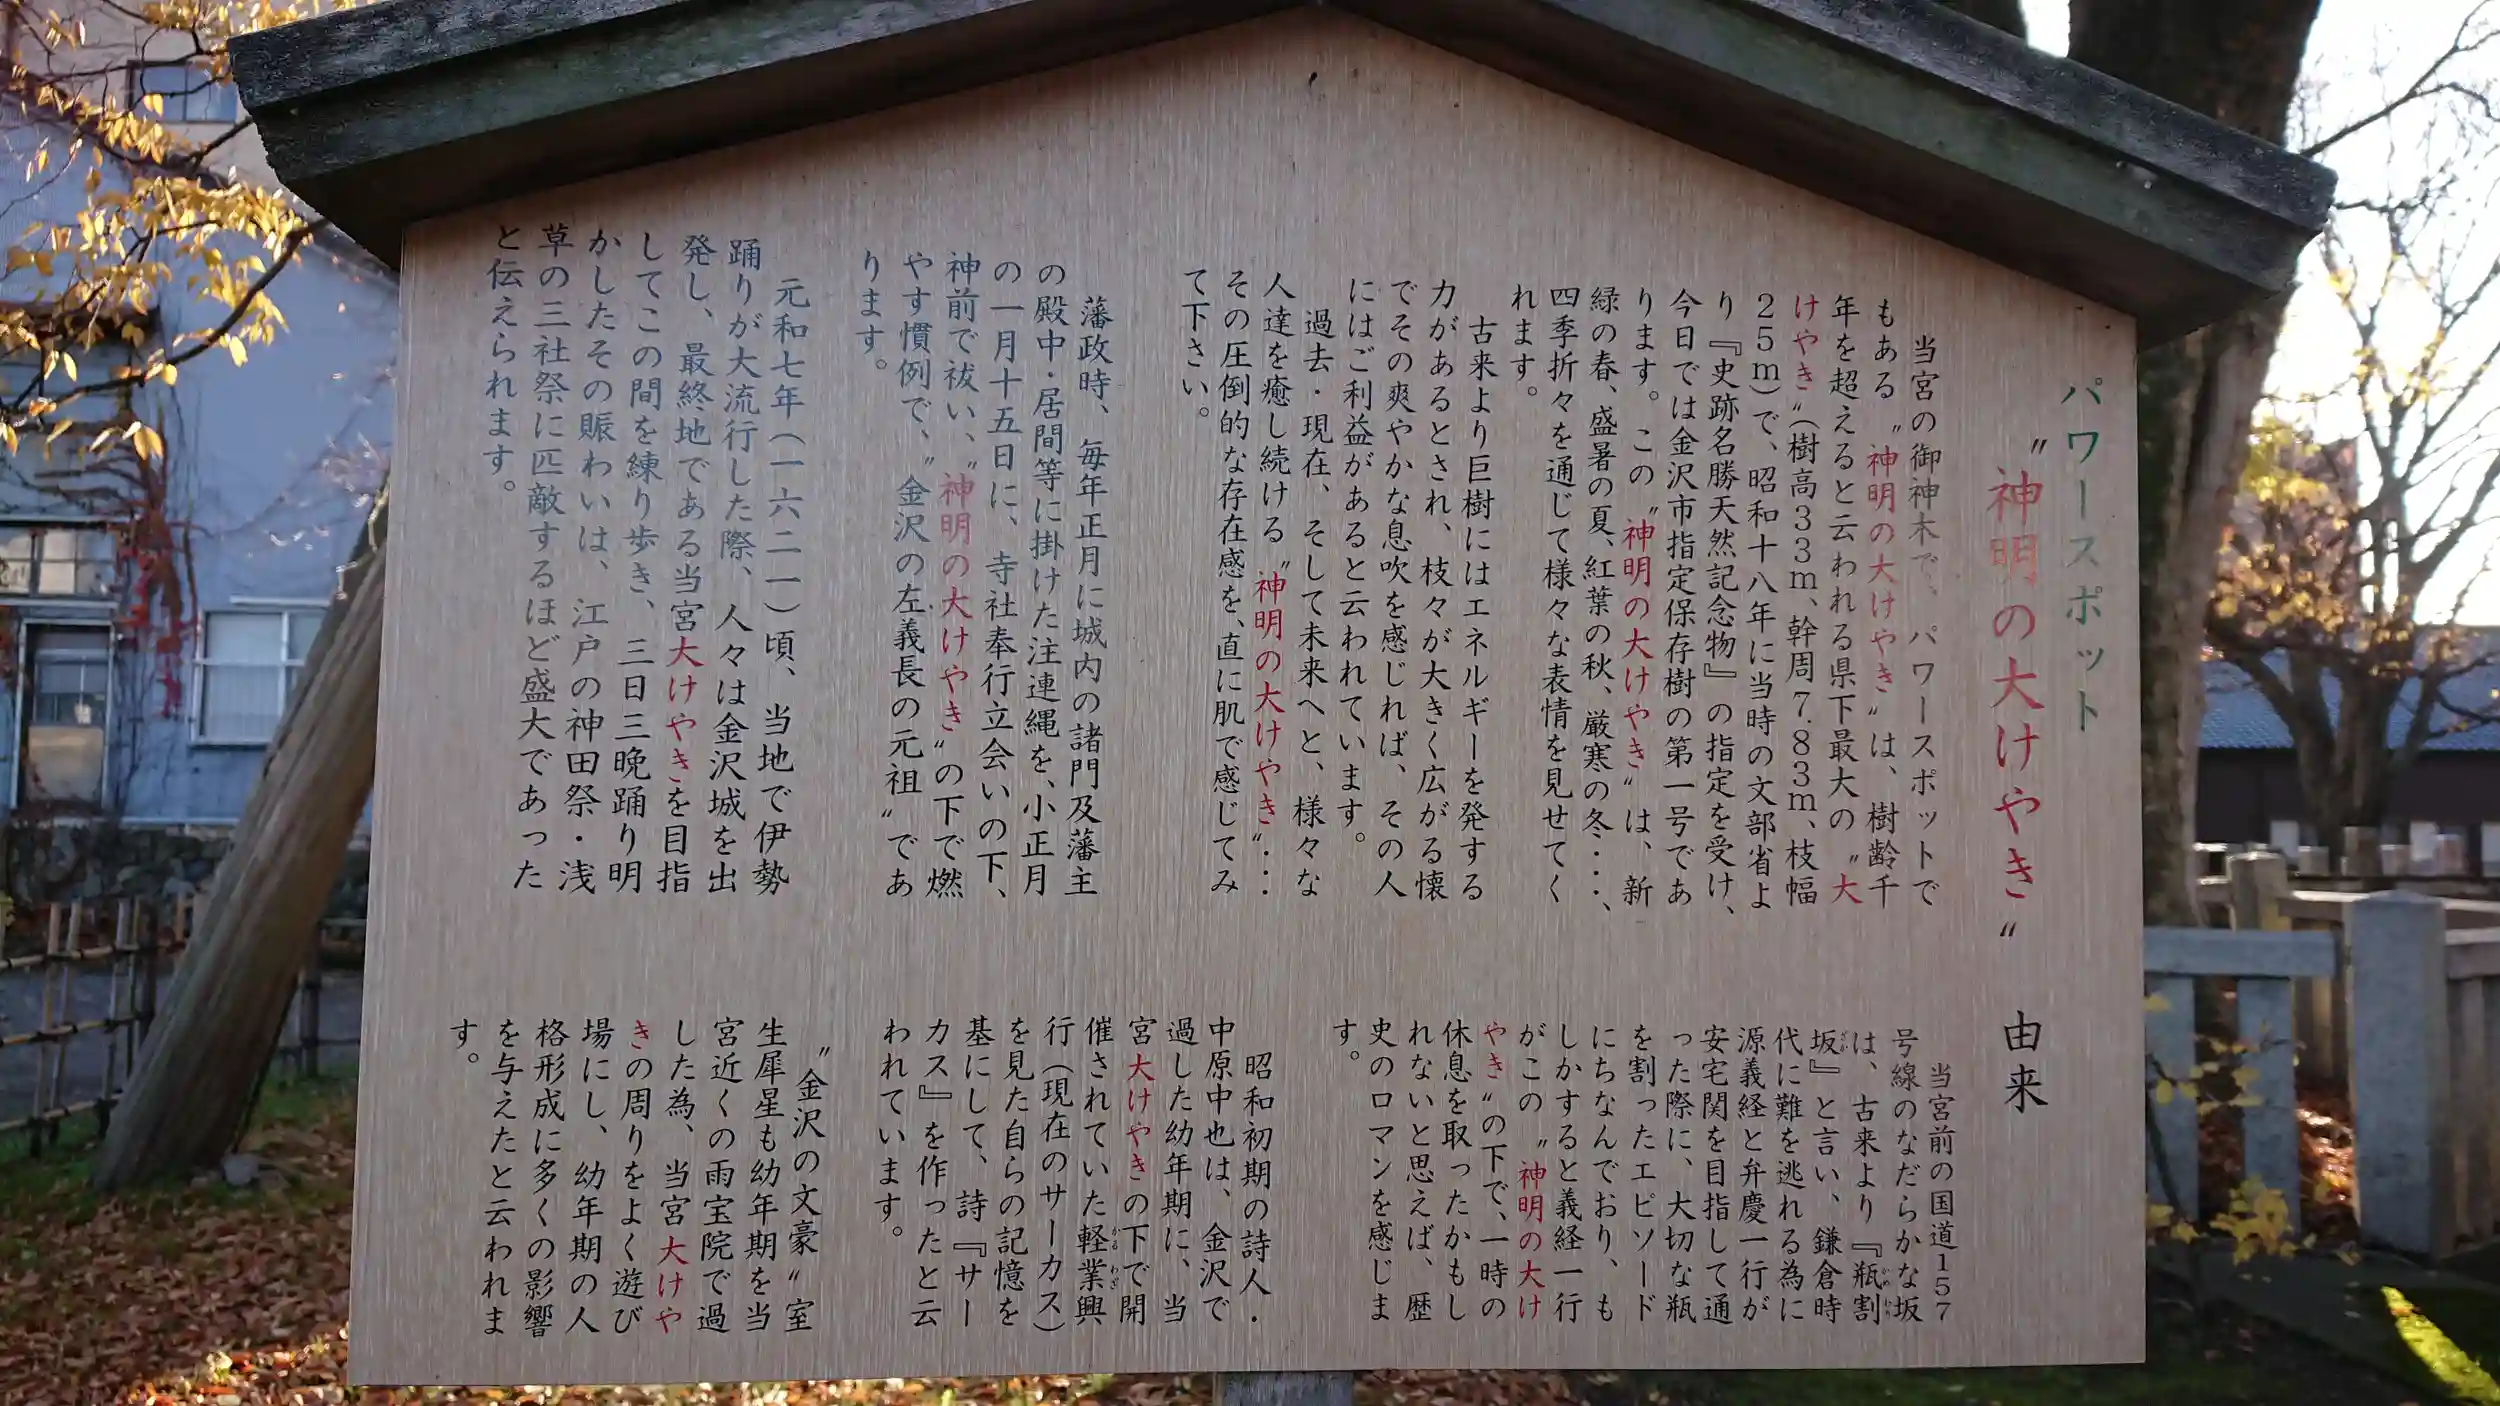 パワースポット
〝神明の大けやき〟 由来
当宮の御神木で、パワースポットで
もある〝神明の大けやき〟は、樹齢千
年を超えると云われる県下最大の〝大
けやき〟(樹高33m、幹周7.83m、枝幅
25m)で、昭和十八年に当時の文部省よ
り『史跡名勝天然記念物』の指定を受け、
今日では金沢市指定保存樹の第一号であ
ります。この〝神明の大けやき〟は、新
緑の春、盛暑の夏、紅葉の秋、厳寒の冬‥‥、
四季折々を通じて様々な表情を見せてく
れます。
古来より巨樹にはエネルギーを発する
力があるとされ、枝々が大きく広がる懐
でその爽やかな息吹を感じれば、その人
にはご利益があると云われています。
過去・現在、そして未来へと、様々な
人達を癒し続ける〝神明の大けやき〟‥‥
その圧倒的な存在感を、直に肌で感じてみ
て下さい。
藩政時、毎年正月に城内の諸門及藩主
の殿中・居間等に掛けた注連縄を、小正月
の一月十五日に、寺社奉行立会いの下、
神前で祓い、〝神明の大けやき〟の下で燃
やす慣例で、〝金沢の左義長の元祖〟であ
ります。
元和七年(一六二一)頃、当地で伊勢
踊りが大流行した際、人々は金沢城を出
発し、最終地である当宮大けやきを目指
してこの間を練り歩き、三日三晩踊り明
かしたその賑わいは、江戸の神田祭・浅
草の三社祭に匹敵するほど盛大であった
と伝えられます。
当宮前の国道157
号線のなだらかな坂
は、古来より『瓶割
坂』と言い、鎌倉時
代に難を逃れる為に
源義経と弁慶一行が
安宅関を目指して通
った際に、大切な瓶
を割ったエピソード
にちなんでおり、も
しかすると義経一行
がこの〝神明の大け
やき〟の下で、一時の
休息を取ったかもし
れないと思えば、歴
史のロマンを感じま
す。
昭和初期の詩人・
中原中也は、金沢で
過した幼年期に、当
宮大けやきの下で開
催されていた軽業興
行(現在のサーカス)
を見た自らの記憶を
基にして、詩『サー
カス』を作ったと云
われています。
〝金沢の文豪〟室
生犀星も幼年期を当
宮近くの雨宝院で過
した為、当宮大けや
きの周りをよく遊び
場にし、幼年期の人
格形成に多くの影響
を与えたと云われま
す。